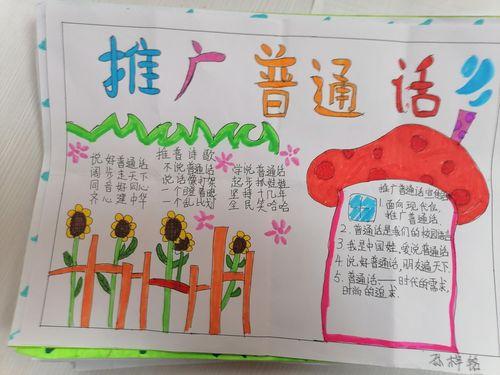 推广普通话
推普诗歌
说好普通话
阔步走天下
同音好同心
齐心建中华
不说普通话
说话像打架
一个瞪着眼
一个乱比划
学说普通
起步抓娃娃
坚持十几年
全民笑哈哈
推广普通话宣传
1.面向现代化,
推广普通话
2.普通话是我们的校园语言
3.我是中国娃,爱说普通话
4.说好普通话,朋友遍天下.
5.普通话——时代的需求,
时尚的追求.